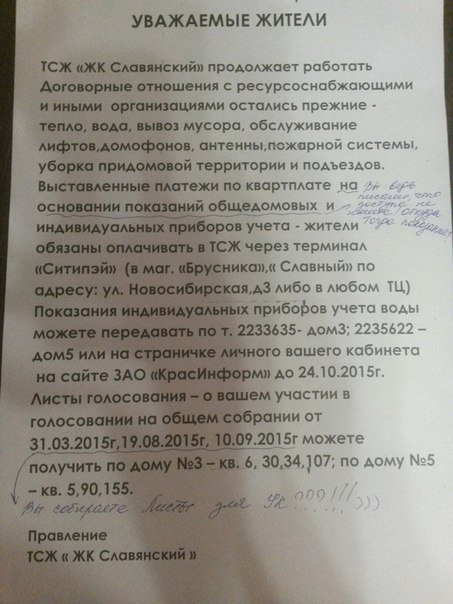 УВАЖАЕМЫЕ ЖИТЕЛИ
ТСЖ «ЖК Славянский» продолжает работать
Договорные отношения с ресурсоснабжающими
и иными организациями остались прежние -
тепло, вода, вывоз мусора, обслуживание
лифтов,домофонов, антенны,пожарной системы,
уборка придомовой территории и подъездов.
Выставленные платежи по квартплате на
основании показаний общедомовых и
индивидуальных приборов учета - жители
обязаны оплачивать в ТСЖ через терминал
«Ситипэй» (в маг. «Брусника»,« Славный» по
адресу: ул. Новосибирская,д3 либо в любом ТЦ)
Показания индивидуальных приборов учета воды
можете передавать по т. 2233635- дом3; 2235622 –
дом5 или на страничке личного вашего кабинета
на сайте ЗАО «КрасИнформ» до 24.10.2015г.
Листы голосования – о вашем участии в
голосовании на общем собрании от
31.03.2015г,19.08.2015г, 10.09.2015г можете
получить по дому №3 – кв. 6, 30,34,107; по дому №5
– кв. 5,90,155.
Правление
ТСЖ « ЖК Славянский »
Вы ведь
писали, что
доступа не
имеете! откуда
тогда показания?
Вы собираете Листы для УК???!!!)))